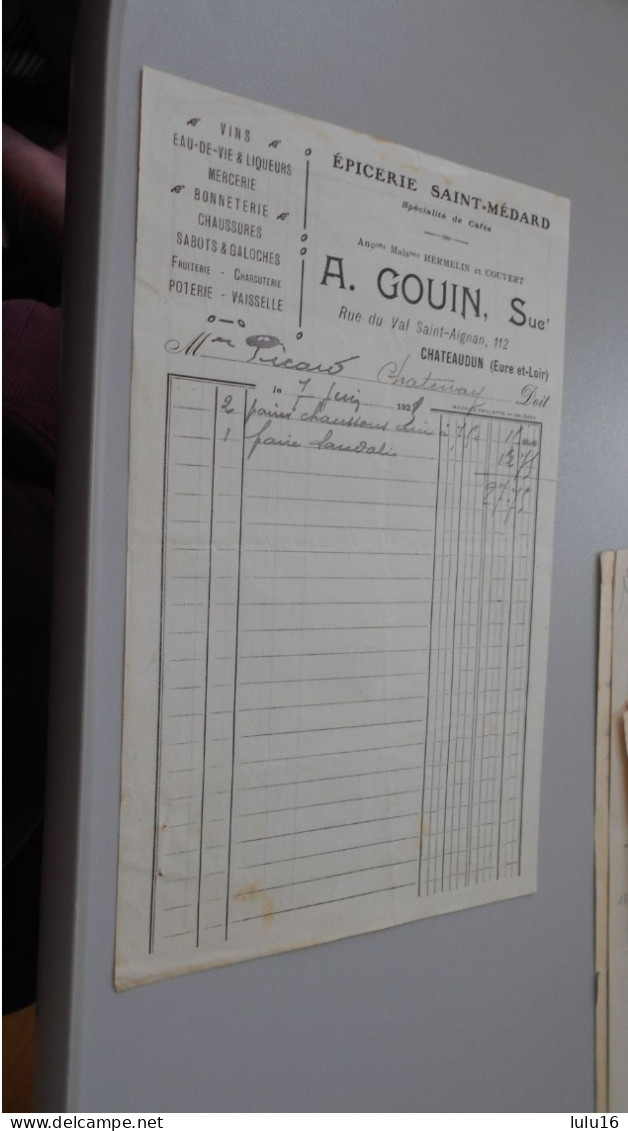 VINS
EAU-DE-VIE & LIQUEURS
MERCERIE
BONNETERIE
CHAUSSURES
SABOTS & GALOCHES
FRUITERIE - CHARCUTERIE
POTERIE - VAISSELLE
ÉPICERIE SAINT-MÉDARD
Spécialité de Cafés
Angnes Maisons HERMELIN et COUVERT
A. GOUIN, Sucr
Rue du Val Saint-Aignan, 112
CHATEAUDUN (Eure et-Loir)
Picard Chatenay Doit
le 7 Juin 192
2 paires chaussons à 7,50 15
1 paire Sandales 12 75
27,75
lulu16